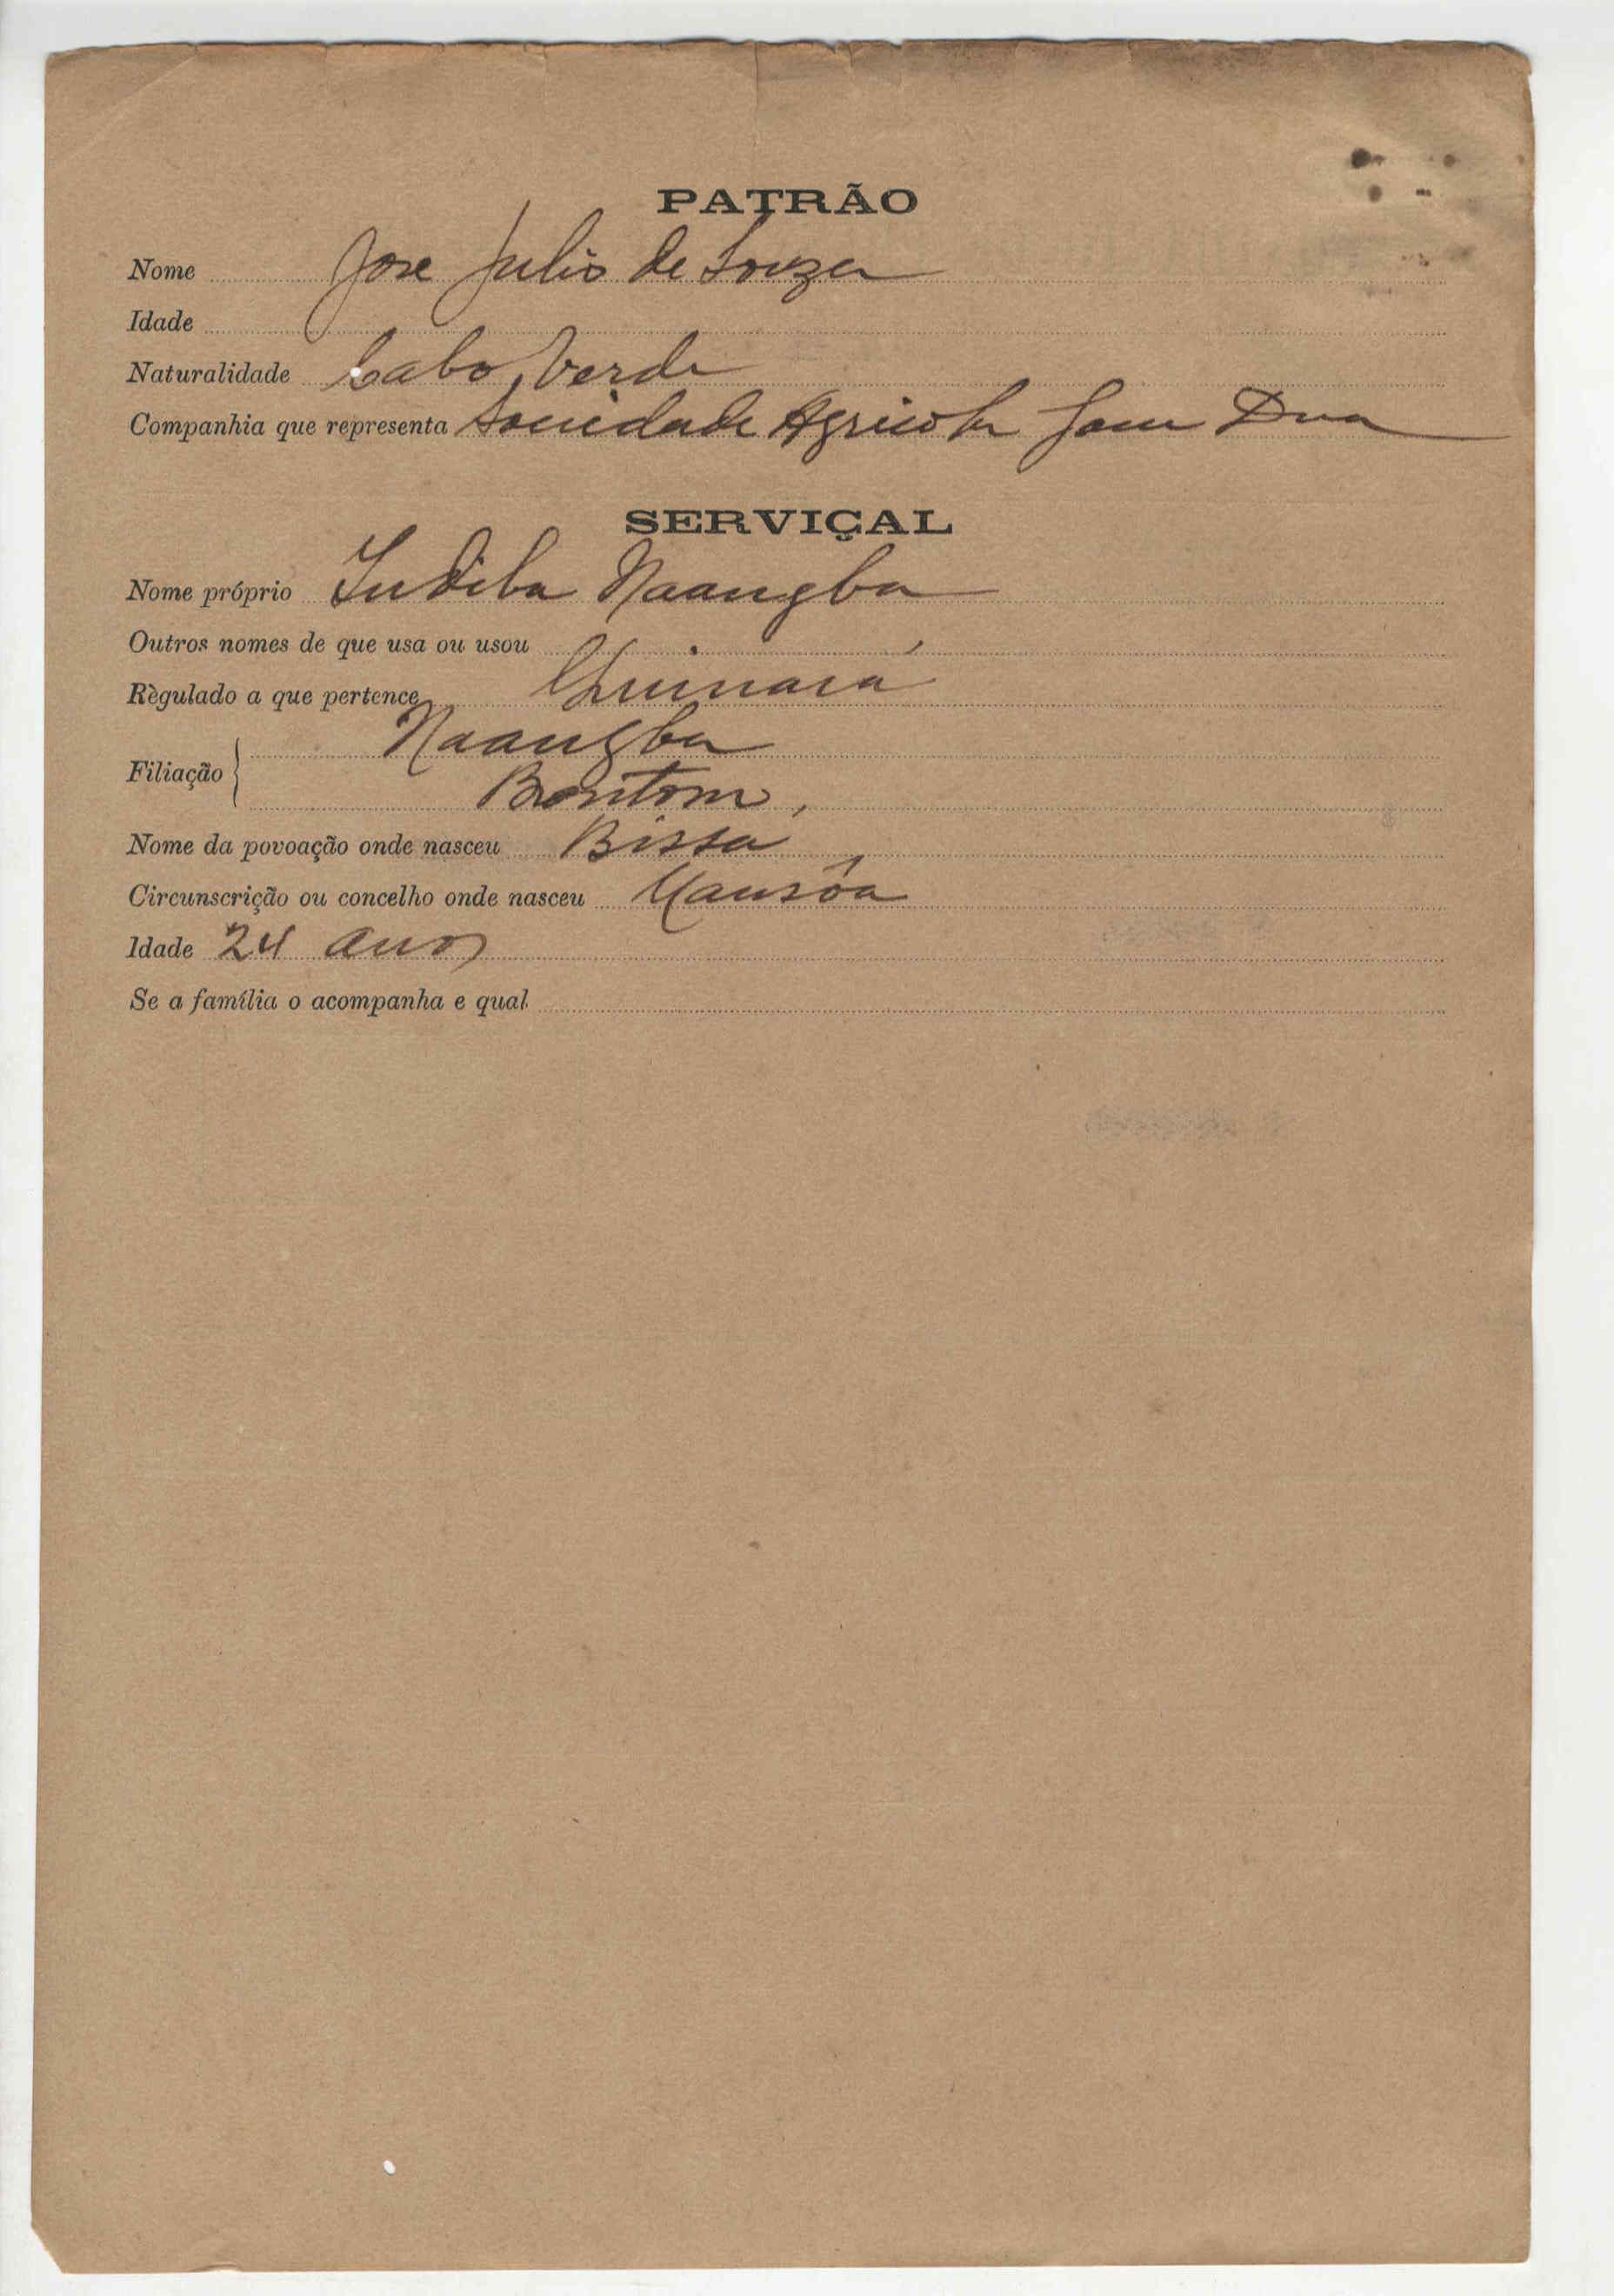 PATRÃO
Nome Jose Julio de Souza
Idade
Naturalidade Cabo Verde
Companhia que representa Sociedade Agricola Gam Dua
SERVIÇAL
Nome próprio Indiba Naangba
Outros nomes de que usa ou usou
Règulado a que pertence Quinará
Filiação Naangba
Bontom,
Nome da povoação onde nasceu Bissa
Circunscrição ou concelho onde nasceu Mansôa
Idade 24 anos
Se a família o acompanha e qual